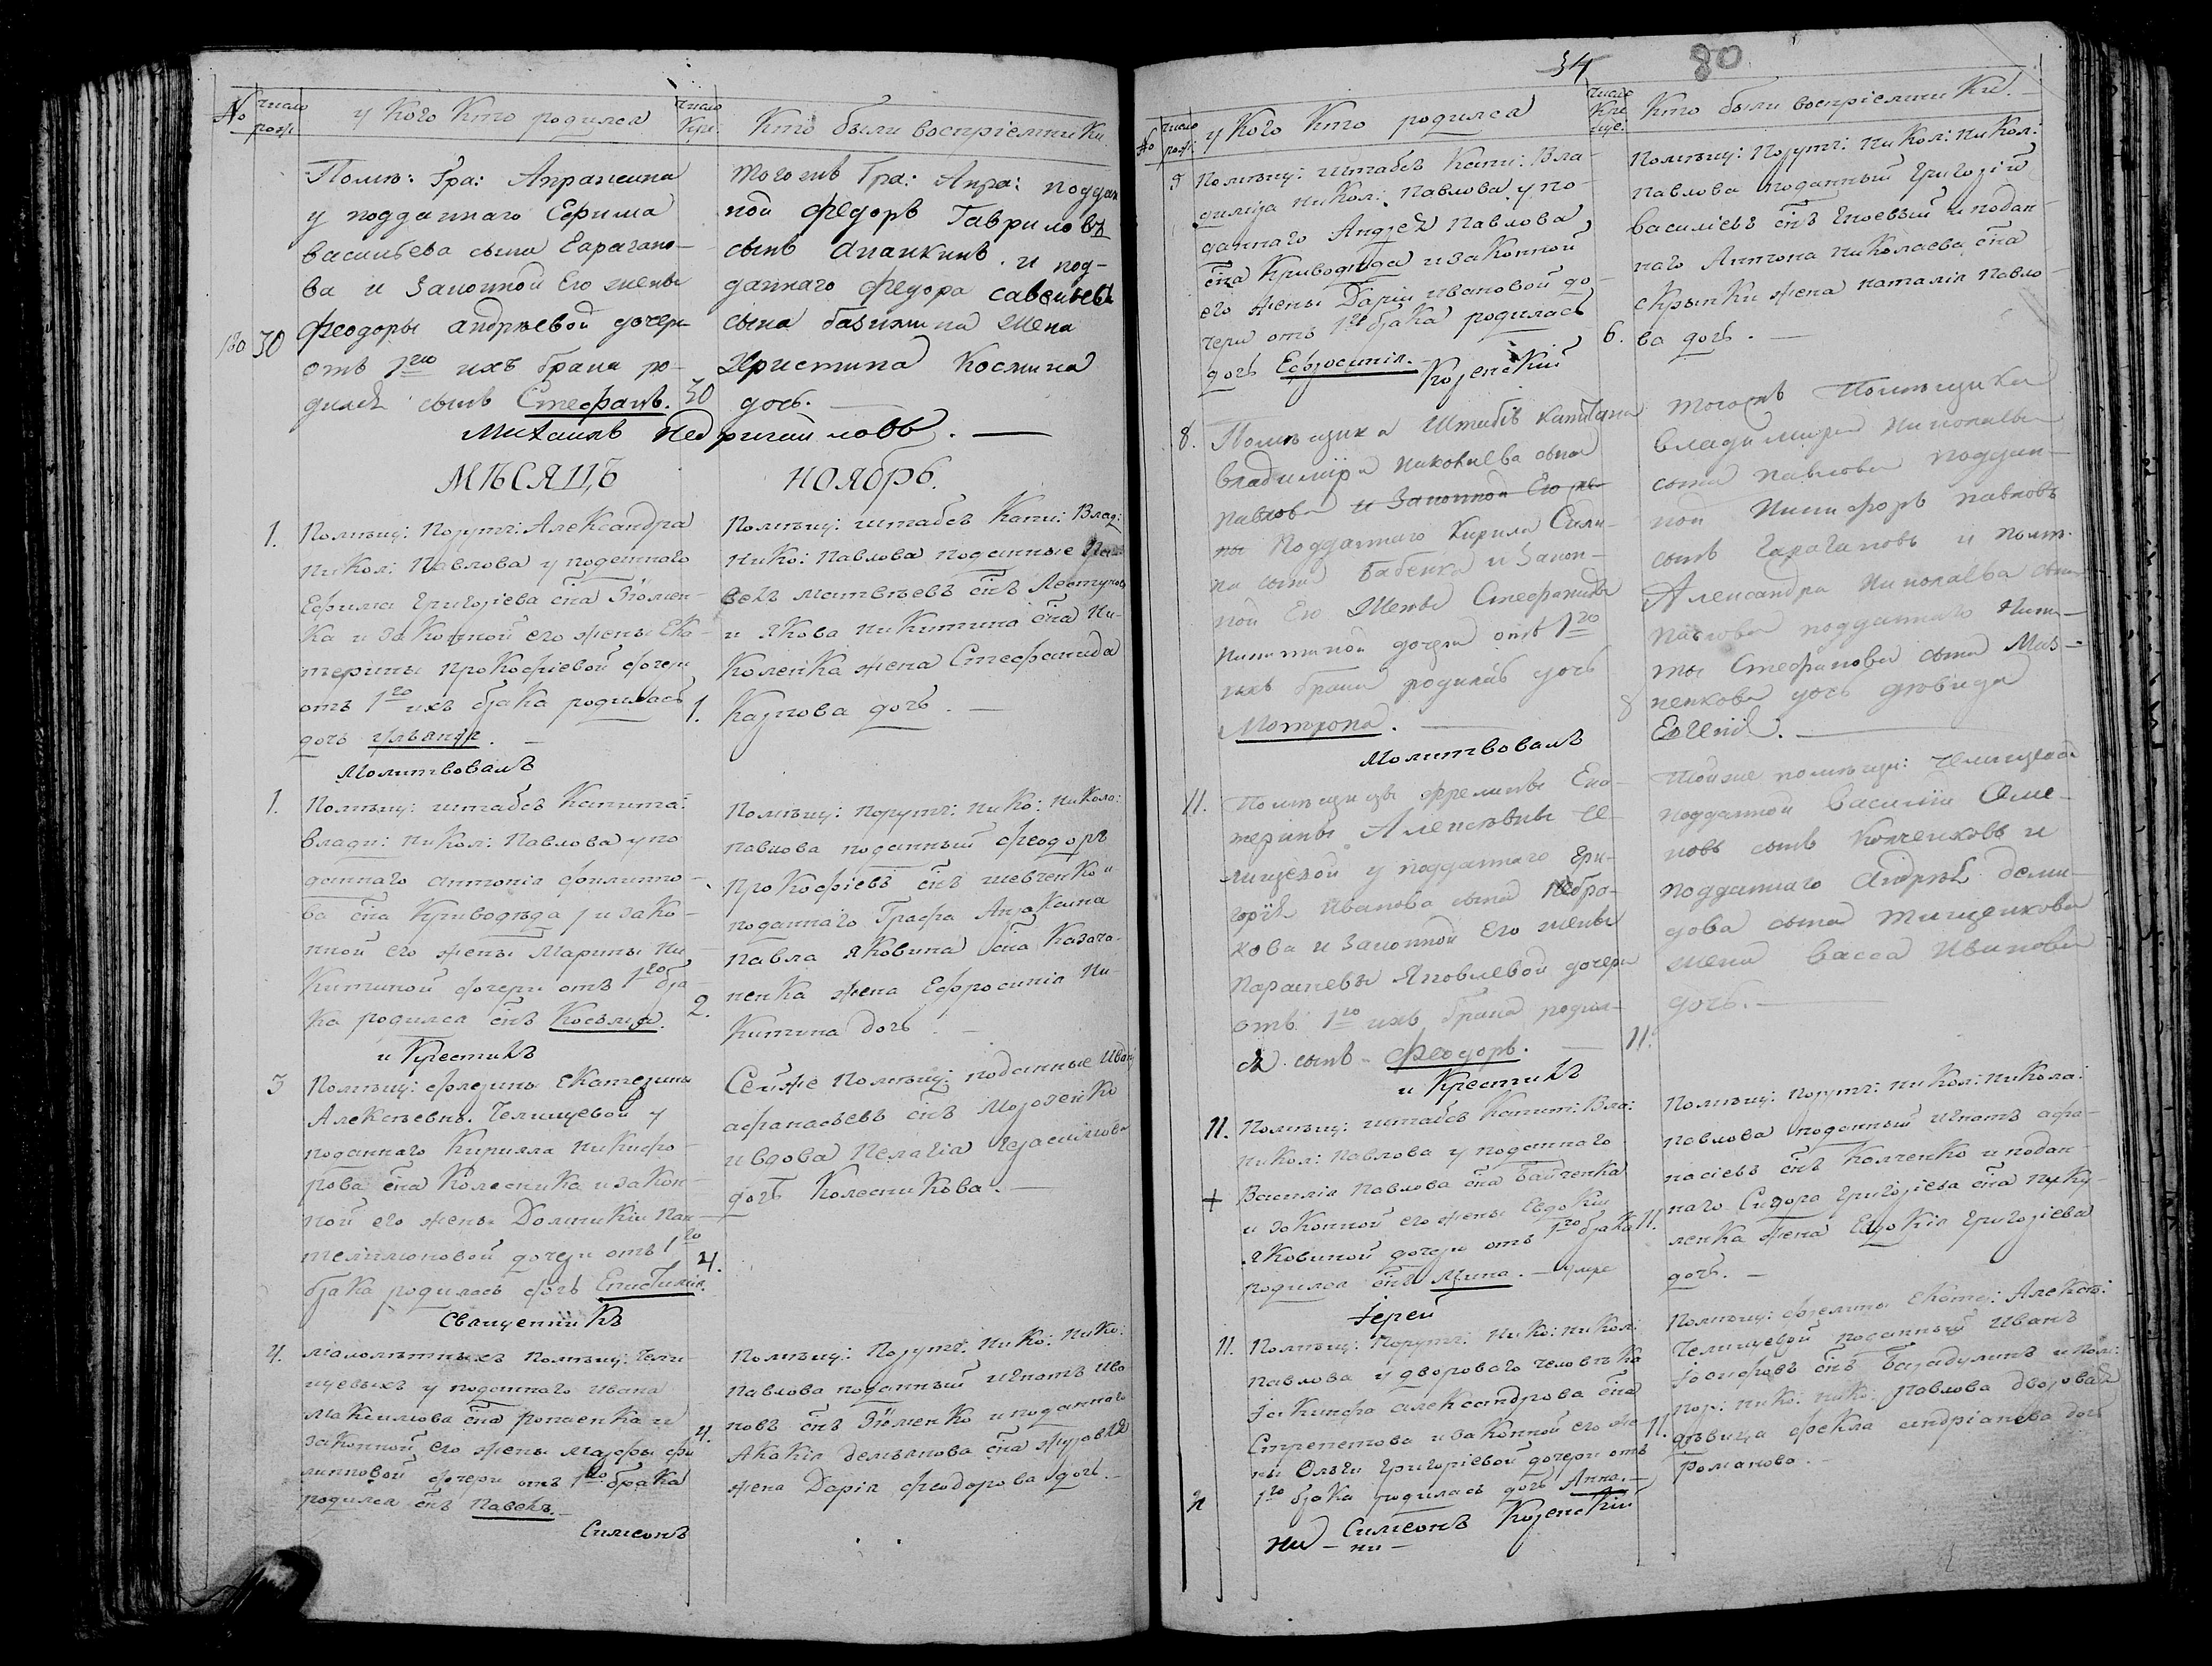 № число рож:
у Кого Кто родился
число Кре:
Кто были воспріемники
Помѣ: Гра: Апраксина
у подданнаго Ефима
васильева сына Гарагано-
ва и Законной Его жены
Феодоры андрѣевой дочери
180 30
отъ 1го ихъ брака ро-
дился сынъ Стефанъ. 30
Тогожъ Гра: Апра: поддан
ной Федоръ Гавриловъ
сынъ и под-
даннаго Федора савельева
сына жена
Христина Космина
дочь.
Михаилъ
МѢСЯЦЪ НОЯБРЬ.
1. Помѣщ: Порутч: Александра
Никол: Павлова у поданнаго
Ефима Григорьева сна Тюмен-
ка и законной его жены Ека-
терины прокофіевой дочери
отъ 1го ихъ брака родилась 1.
дочь ульянія.
Помѣщ: штабсъ Капи: Влад:
Нико: Павлова поданные Па
велъ матвѣевъ снъ
и Якова никитина сна Ни-
коленка жена Стефанида
Карпова дочь.
Молитвовалъ
1. Помѣщ: штабсъ Капита:
влади: Никол: Павлова у по
даннаго антонія филиппо-
ва сна Криводѣда, и зако-
нной его жены Марины ни-
китиной дочери отъ 1го бра-
ка родился снъ Косьма. 2.
Помѣщ: порутч: Нико: николо:
павлова поданный феодоръ
Прокофіевъ снъ шевченко и
поданнаго Графа Апраксина
павла яковина сна Казачо-
ненка жена Ефросинія Ни-
китина дочь.
и Крестилъ
3 Помѣщ: Екатерины
Алексѣевны. Челищевой у
поданнаго Кирилла никифо-
рова сна Колесника и закон-
ной его жены Домникіи Пан-
телимоновой дочери отъ 1го 4.
брака родилась дочь Епистимія.
Сейже помѣщ: поданные Иванъ
афанасьевъ снъ Мороченко
и вдова Пелагія Герасимова
дочь Колесникова.
Священникъ
4. малолѣтныхъ помѣщ: Чели-
щевыхъ у поданнаго ивана
максимова сна ропаенка и
законной его жены марфы фи 4.
липповой дочери отъ 1го брака
родился снъ Павелъ.
Помѣщ: Порутч: Нико: Нико:
Павлова поданный игнатъ ива
новъ снъ Тюменко и поданнаго
Акакія демьянова сна журавля
жена Дарія Феодорова дочь.
Симеонъ
34 80
№ число рож:
у Кого Кто родился
число Кре ще:
Кто были воспріемники.
5 Помѣщ: штабсъ Капи: Вла-
димира Никол: Павлова у по-
даннаго Андрея Павлова
сна Криводѣда и законной
его жены Даріи ивановой до-
чери отъ 1го брака родилась 6.
дочь Ефросинія.
Помѣщ: Порутч: Никол: Никол:
Павлова поданный Григорій
василіевъ снъ и подан-
наго Антона Николаева сна
скрыпки жена наталія павло-
ва дочь.
Коренскій
8. Помѣщика Штабсъ Капитана
владиміра николаева сына
павлова и Законной Его же-
ны Подданнаго Кирила Сили-
на сына Бабенка и Закон-
ной Его Жены Стефаниды
никитиной дочери отъ 1го
ихъ брака родилась дочь 8
Мотрона.
Тогожъ Помѣщика
владимира николаева
сына павлова поддан-
ной Никифоръ павловъ
сынъ Гарагановъ и помѣ.
Александра николаева сына
павлова подданнаго Ники-
ты Стефанова сына Маз-
ненкова дочь дѣвица
Евгенія.
Молитвовалъ
11. Помѣщицы Ека-
терины Алексѣевны Че-
лищевой у подданнаго Гри-
горія Иванова сына
кова и Законной Его жены
Параскевы Яковлевой дочери
отъ 1го ихъ брака родил-
ся сынъ Феодоръ. 11.
Тойже помѣщи: Челищевой
подданной Василій Оме-
новъ сынъ и
подданнаго Андрѣя деми-
дова сына Тищенкова
жена Васса Иванова
дочь.
и Крестилъ
11. Помѣщ: штабсъ Капит: Вла:
Никол: Павлова у поданнаго
+ Василія Павлова сна Байченка
и законной его жены Евдокіи
яковиной дочери отъ 1го брака 11.
родился снъ Мина. — умре
Помѣщ: Порутч: Никол: Никола:
павлова поданный игнатъ афа-
насіевъ снъ Колченко и подан-
наго Сидора Григорієва сна
ленка жена Евдокія Григоріева
дочь.
Іерей
11. Помѣщ: Порутч: Нико: Никол:
Павлова у двороваго человѣка
Іакинфа александрова сна
Стрепетова и законной его же- 11.
ны Ольги Григоріевой дочери отъ
1го брака родилась дочь Анна.
Помѣщ: Екате: Алексѣ:
Челищевой поданный Иванъ
Іосифовъ снъ и пом:
пор: нико: нико: Павлова дворовая
дѣвица Фекла андріанова дочь
Романова.
Симеонъ Коренскій